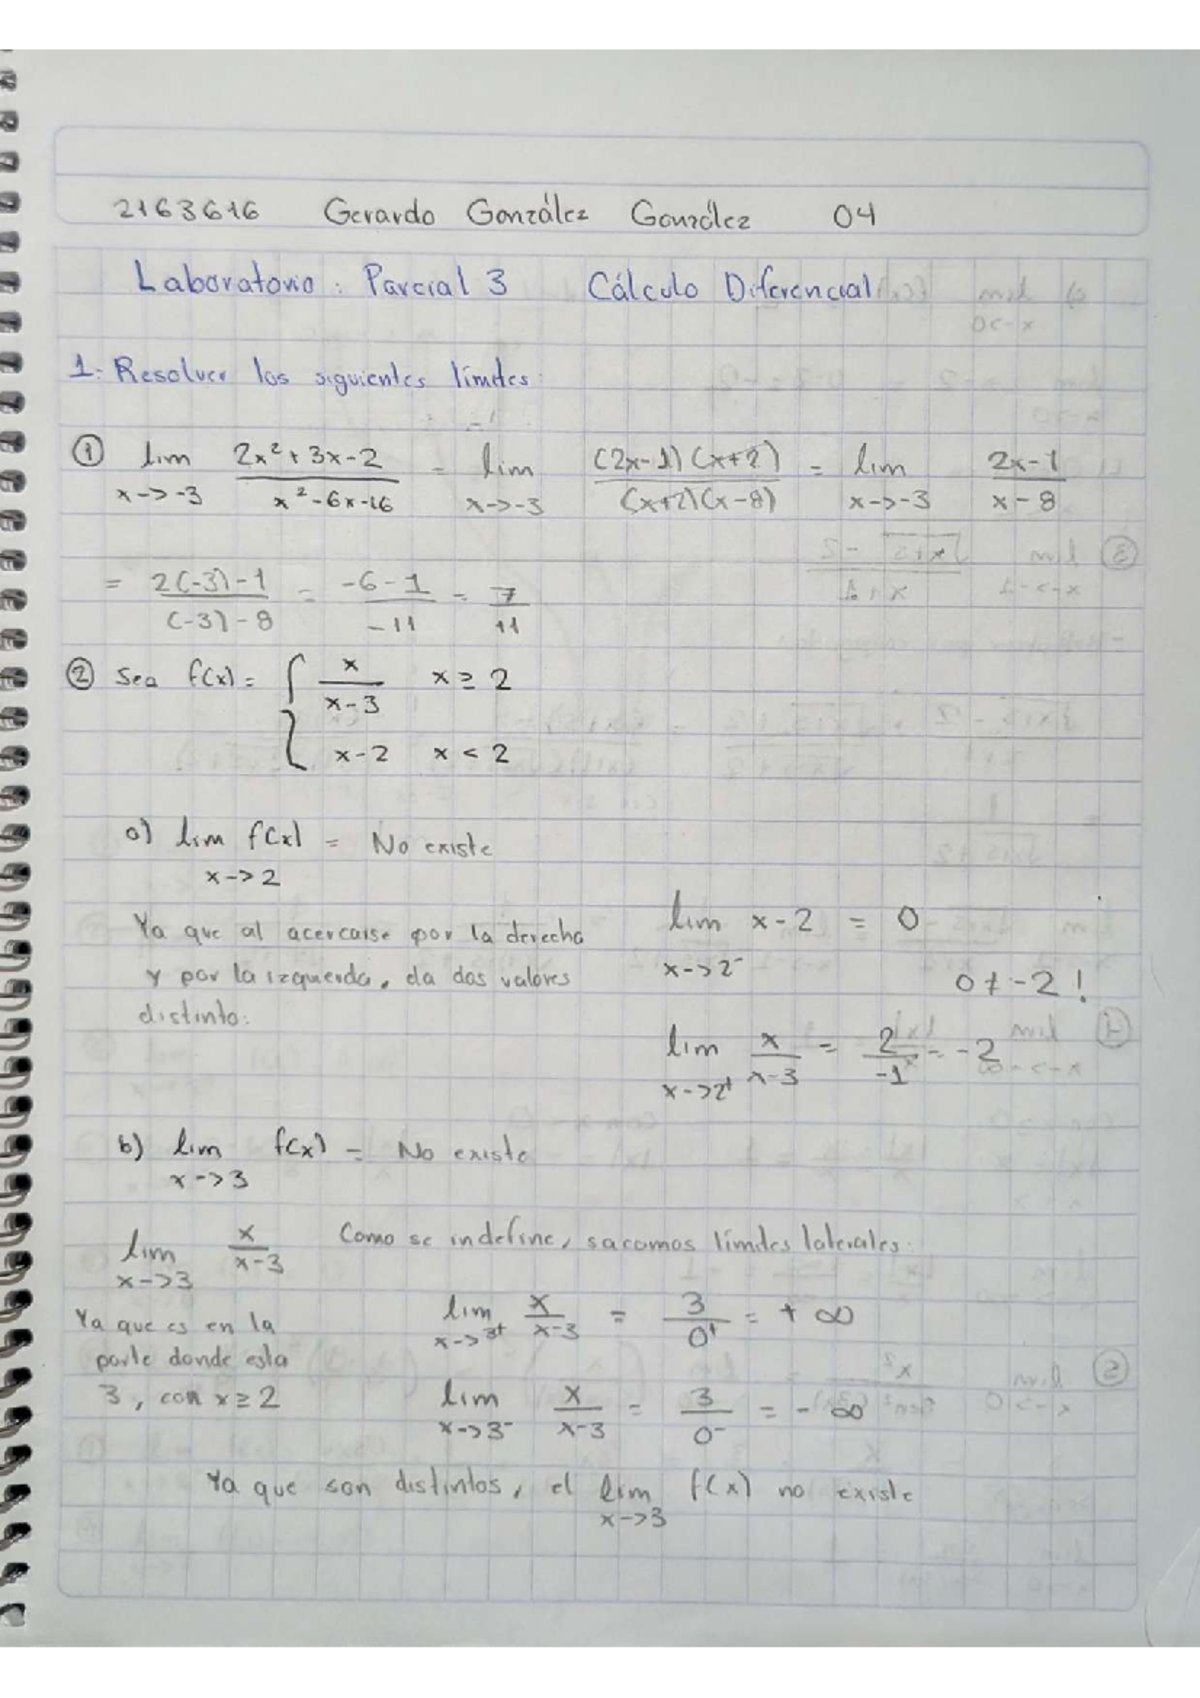 2163616 Gerardo González González 04
Laboratorio: Parcial 3 Cálculo Diferencial
1. Resolver los siguientes límites:
① lim x->-3 (2x²+3x-2)/(x²-6x-16) = lim x->-3 ((2x-1)(x+2))/((x+2)(x-8)) = lim x->-3 (2x-1)/(x-8)
= (2(-3)-1)/((-3)-8) = (-6-1)/(-11) = 7/11
② Sea f(x) = { x/(x-3) x ≥ 2
x-2 x < 2
a) lim x->2 f(x) = No existe
Ya que al acercarse por la derecha
y por la izquierda, da dos valores
distinto.
lim x->2⁻ x-2 = 0
0 ≠ -2!
lim x->2⁺ x/(x-3) = 2/-1 = -2
b) lim x->3 f(x) = No existe
lim x->3 x/(x-3) Como se indefine, sacamos límites laterales:
Ya que es en la
parte donde esta
3, con x ≥ 2
lim x->3⁺ x/(x-3) = 3/0⁺ = +∞
lim x->3⁻ x/(x-3) = 3/0⁻ = -∞
Ya que son distintos, el lim x->3 f(x) no existe